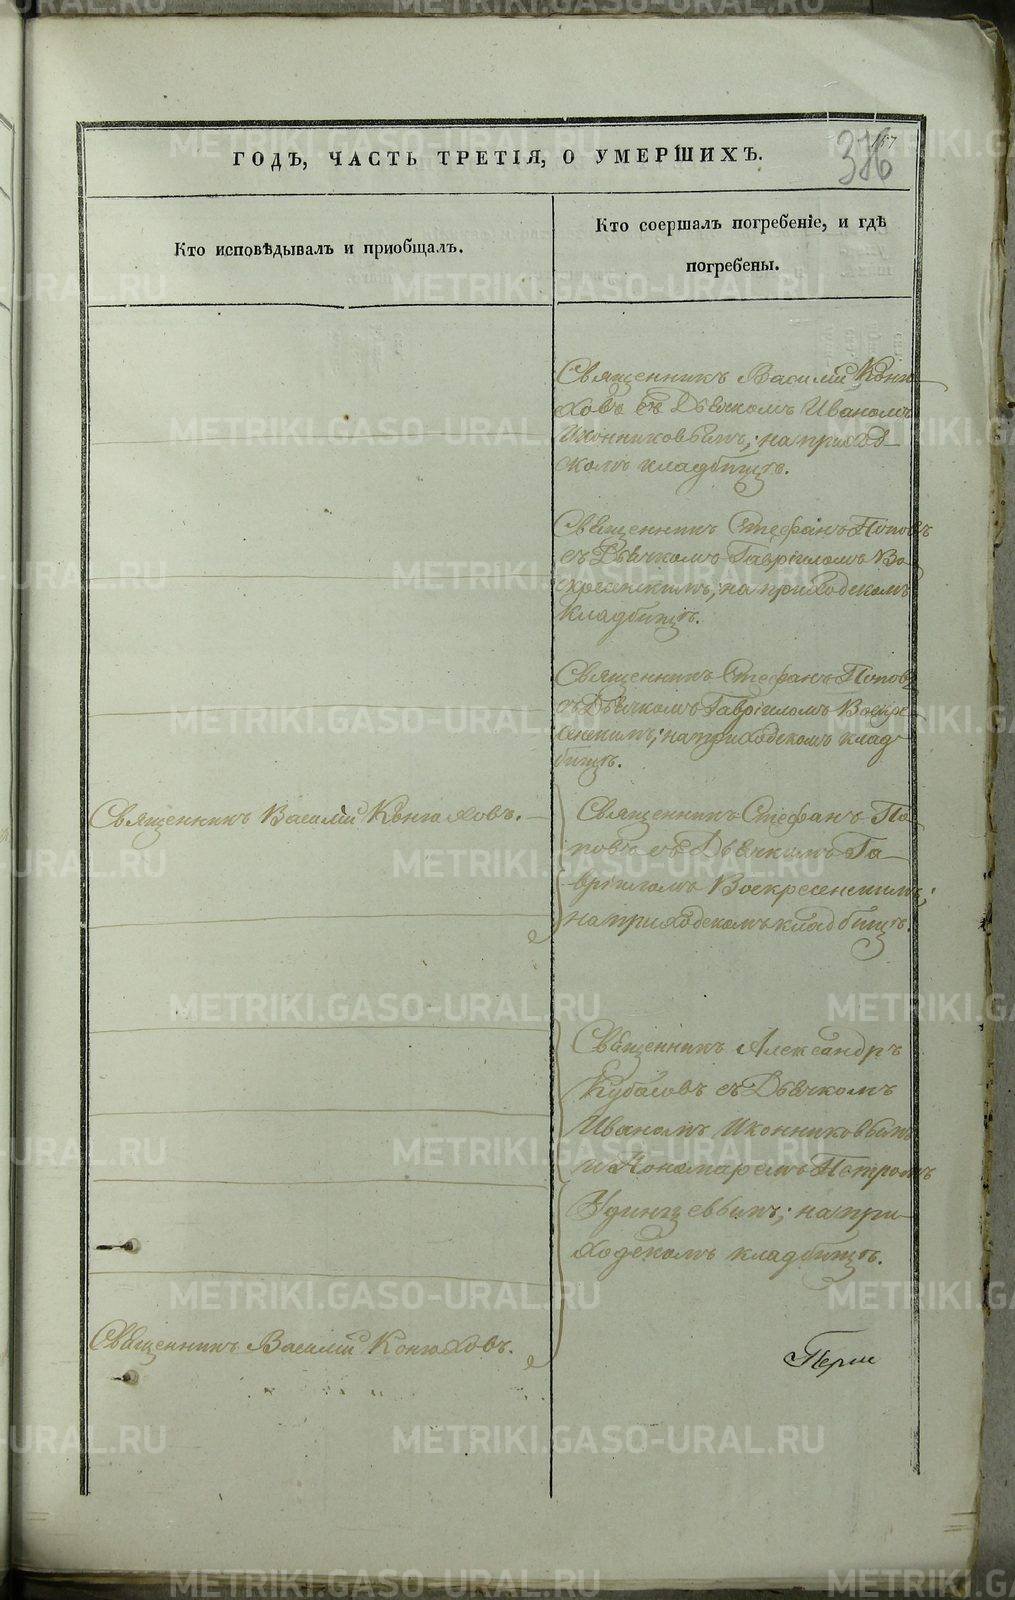 ГОДЪ, ЧАСТЬ ТРЕТІЯ, О УМЕРШИХЪ.
376
Кто исповѣдывалъ и пріобщалъ.
Кто соершалъ погребеніе, и гдѣ
погребены.
Священникъ Василій Коню-
ховъ съ Дьячкомъ Иваномъ
Иконниковымъ; на приход-
скомъ кладбищѣ.
Священникъ Стефанъ Поповъ
съ Дьячкомъ Гавріиломъ Во-
скресенскимъ; на приходскомъ
кладбищѣ.
Священникъ Стефанъ Поповъ
съ Дьячкомъ Гавріиломъ Воскре-
сенскимъ; на приходскомъ клад-
бищѣ.
Священникъ Василій Конюховъ.
Священникъ Стефанъ По-
повъ съ Дьячкомъ Га-
вріиломъ Воскресенскимъ;
на приходскомъ кладбищѣ.
Священникъ Александръ
Кубасовъ съ Дьячкомъ
Иваномъ Иконниковымъ
и Пономаремъ Петромъ
Удинцевымъ; на при-
ходскомъ кладбищѣ.
Священникъ Василій Конюховъ.
METRIKI.GASO-URAL.RU